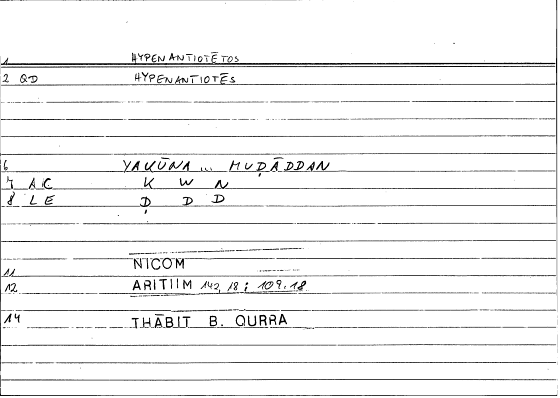 1 HYPENANTIOTĒTOS
2 QD HYPENANTIOTĒS
6 YAKŪNA ... MUḌĀDDAN
7 AC K W N
8 LE Ḍ D D
11 NICOM
12 ARITIIM 142,18; 109,18
14 THĀBIT B. QURRA